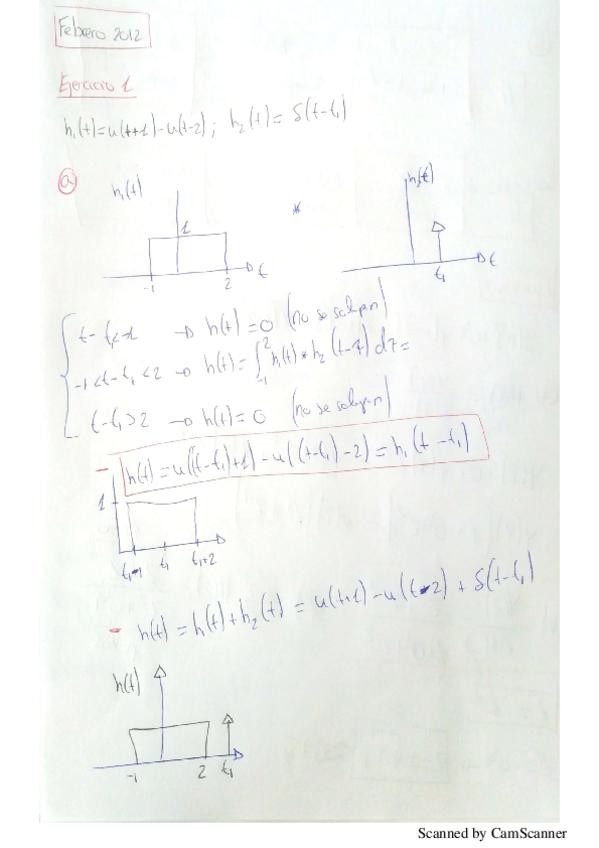 Febrero 2012
Ejercicio 1
h₁(t)=u(t+1)-u(t-2); h₂(t)= δ(t-t₁)
ⓐ h₁(t) * h₂(t)
1
-1 2 t t₁ t
t-t₁<-1 → h(t)=0 (no se solapan)
-1<t-t₁<2 → h(t)=∫₋₁² h₁(t)*h₂(t-τ)dτ=
t-t₁>2 → h(t)=0 (no se solapan)
- h(t)=u((t-t₁)+1)-u((t-t₁)-2)=h₁(t-t₁)
1
t₁-1 t₁ t₁+2
- h(t)=h(t)+h₂(t)=u(t+1)-u(t-2)+δ(t-t₁)
h(t)
-1 2 t₁
Scanned by CamScanner